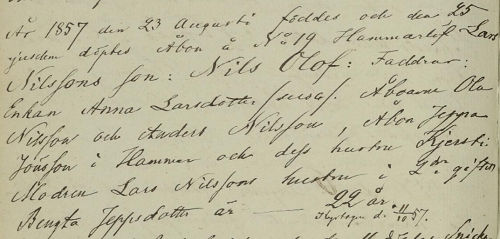 År 1857 den 23 Augusti föddes och den 25
ejusdem döptes Åbon å No 19 Hammarlof Lars
Nilssons son: Nils Olof: Faddrar:
Enkan Anna Larsdotter Åboarne Ola
Nilsson och Anders Nilsson, Åbon Jeppa
Jönsson i Hammar och dess hustru Kjersti
Modren Lars Nilssons hustru i 2dra giftet
Bengta Jeppsdotter är — 22 år.
d. 11/10 57.